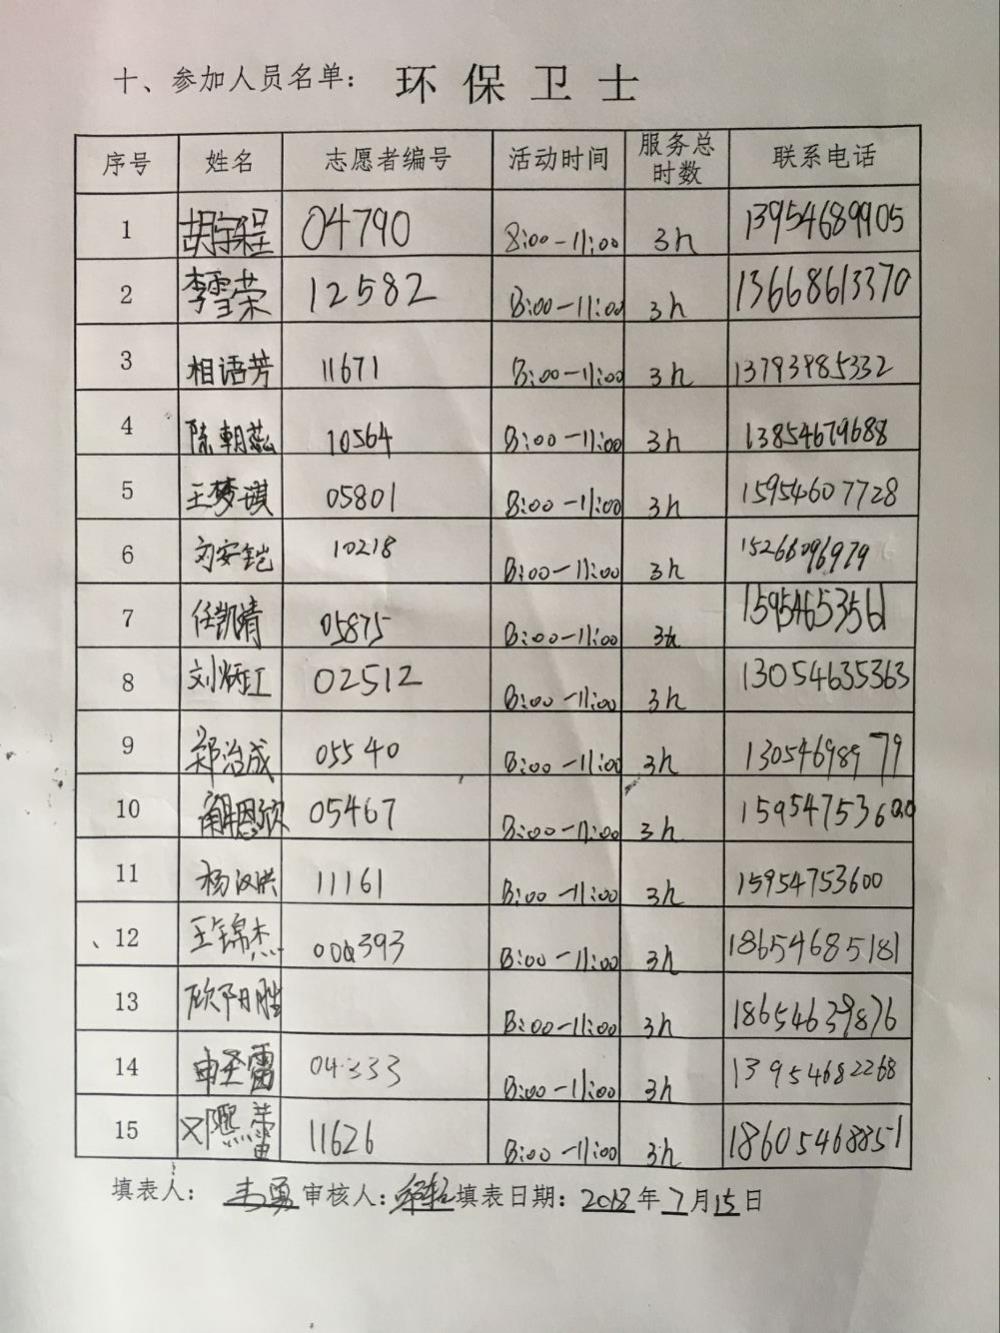 十、参加人员名单： 环保卫士
序号 姓名 志愿者编号 活动时间 服务总时数 联系电话
1 胡宇程 04790 8:00-11:00 3h 13954689905
2 李雪荣 12582 8:00-11:00 3h 13668613370
3 相语芳 11671 8:00-11:00 3h 13793985332
4 陈朝蕊 10564 8:00-11:00 3h 13854679688
5 王梦琪 05801 8:00-11:00 3h 15954607728
6 刘安铠 10218 8:00-11:00 3h 15266096979
7 任凯婧 05875 8:00-11:00 3h 15954653561
8 刘炳江 02512 8:00-11:00 3h 13054635363
9 郑治成 05540 8:00-11:00 3h 13054698979
10 解恩欣 05467 8:00-11:00 3h 15954753600
11 杨汉洪 11161 8:00-11:00 3h 15954753600
12 王锦杰 000393 8:00-11:00 3h 18654685181
13 欧阳胜 8:00-11:00 3h 18654639876
14 申圣雷 04333 8:00-11:00 3h 13954682268
15 邓熙蕾 11626 8:00-11:00 3h 18605468851
填表人： 审核人： 填表日期：2018年7月15日